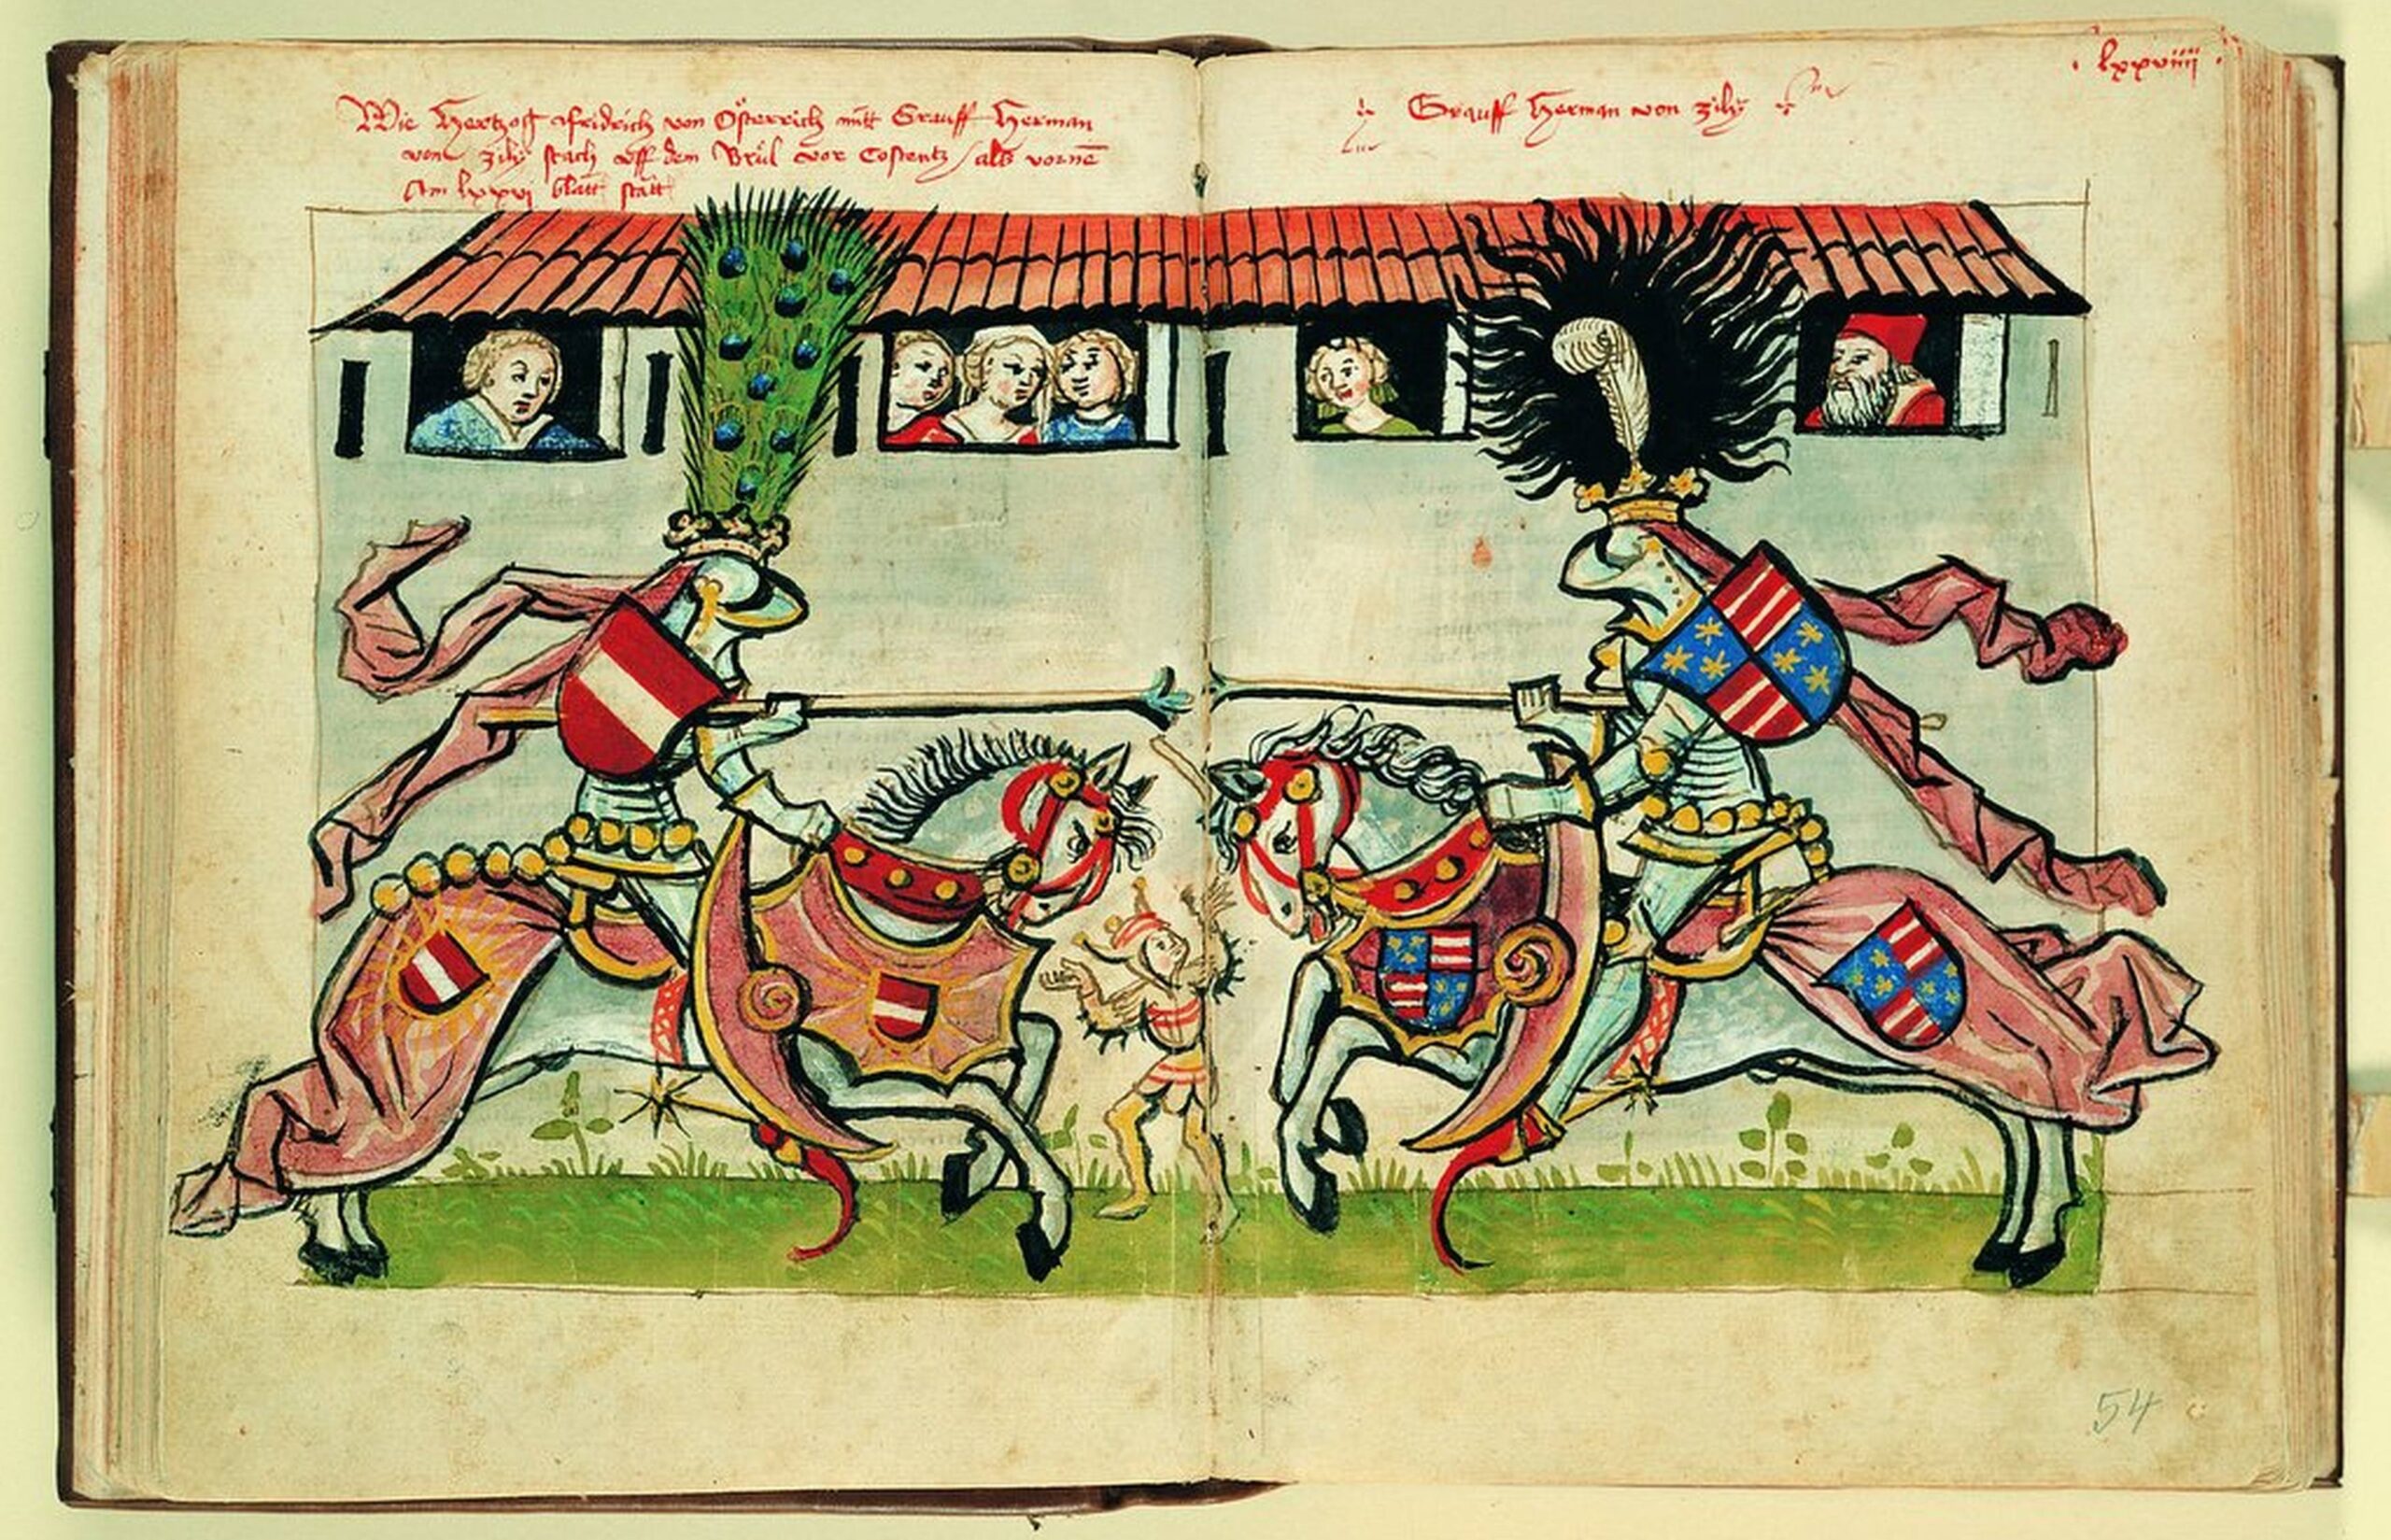 Wie Hertzog fridrich von Österrich mitt Grauff Herman
von zily stach uff dem Brül vor Costentz / als vornē
Am lxxvi blatt statt
Grauff Herman von zily
lxxviiii
54